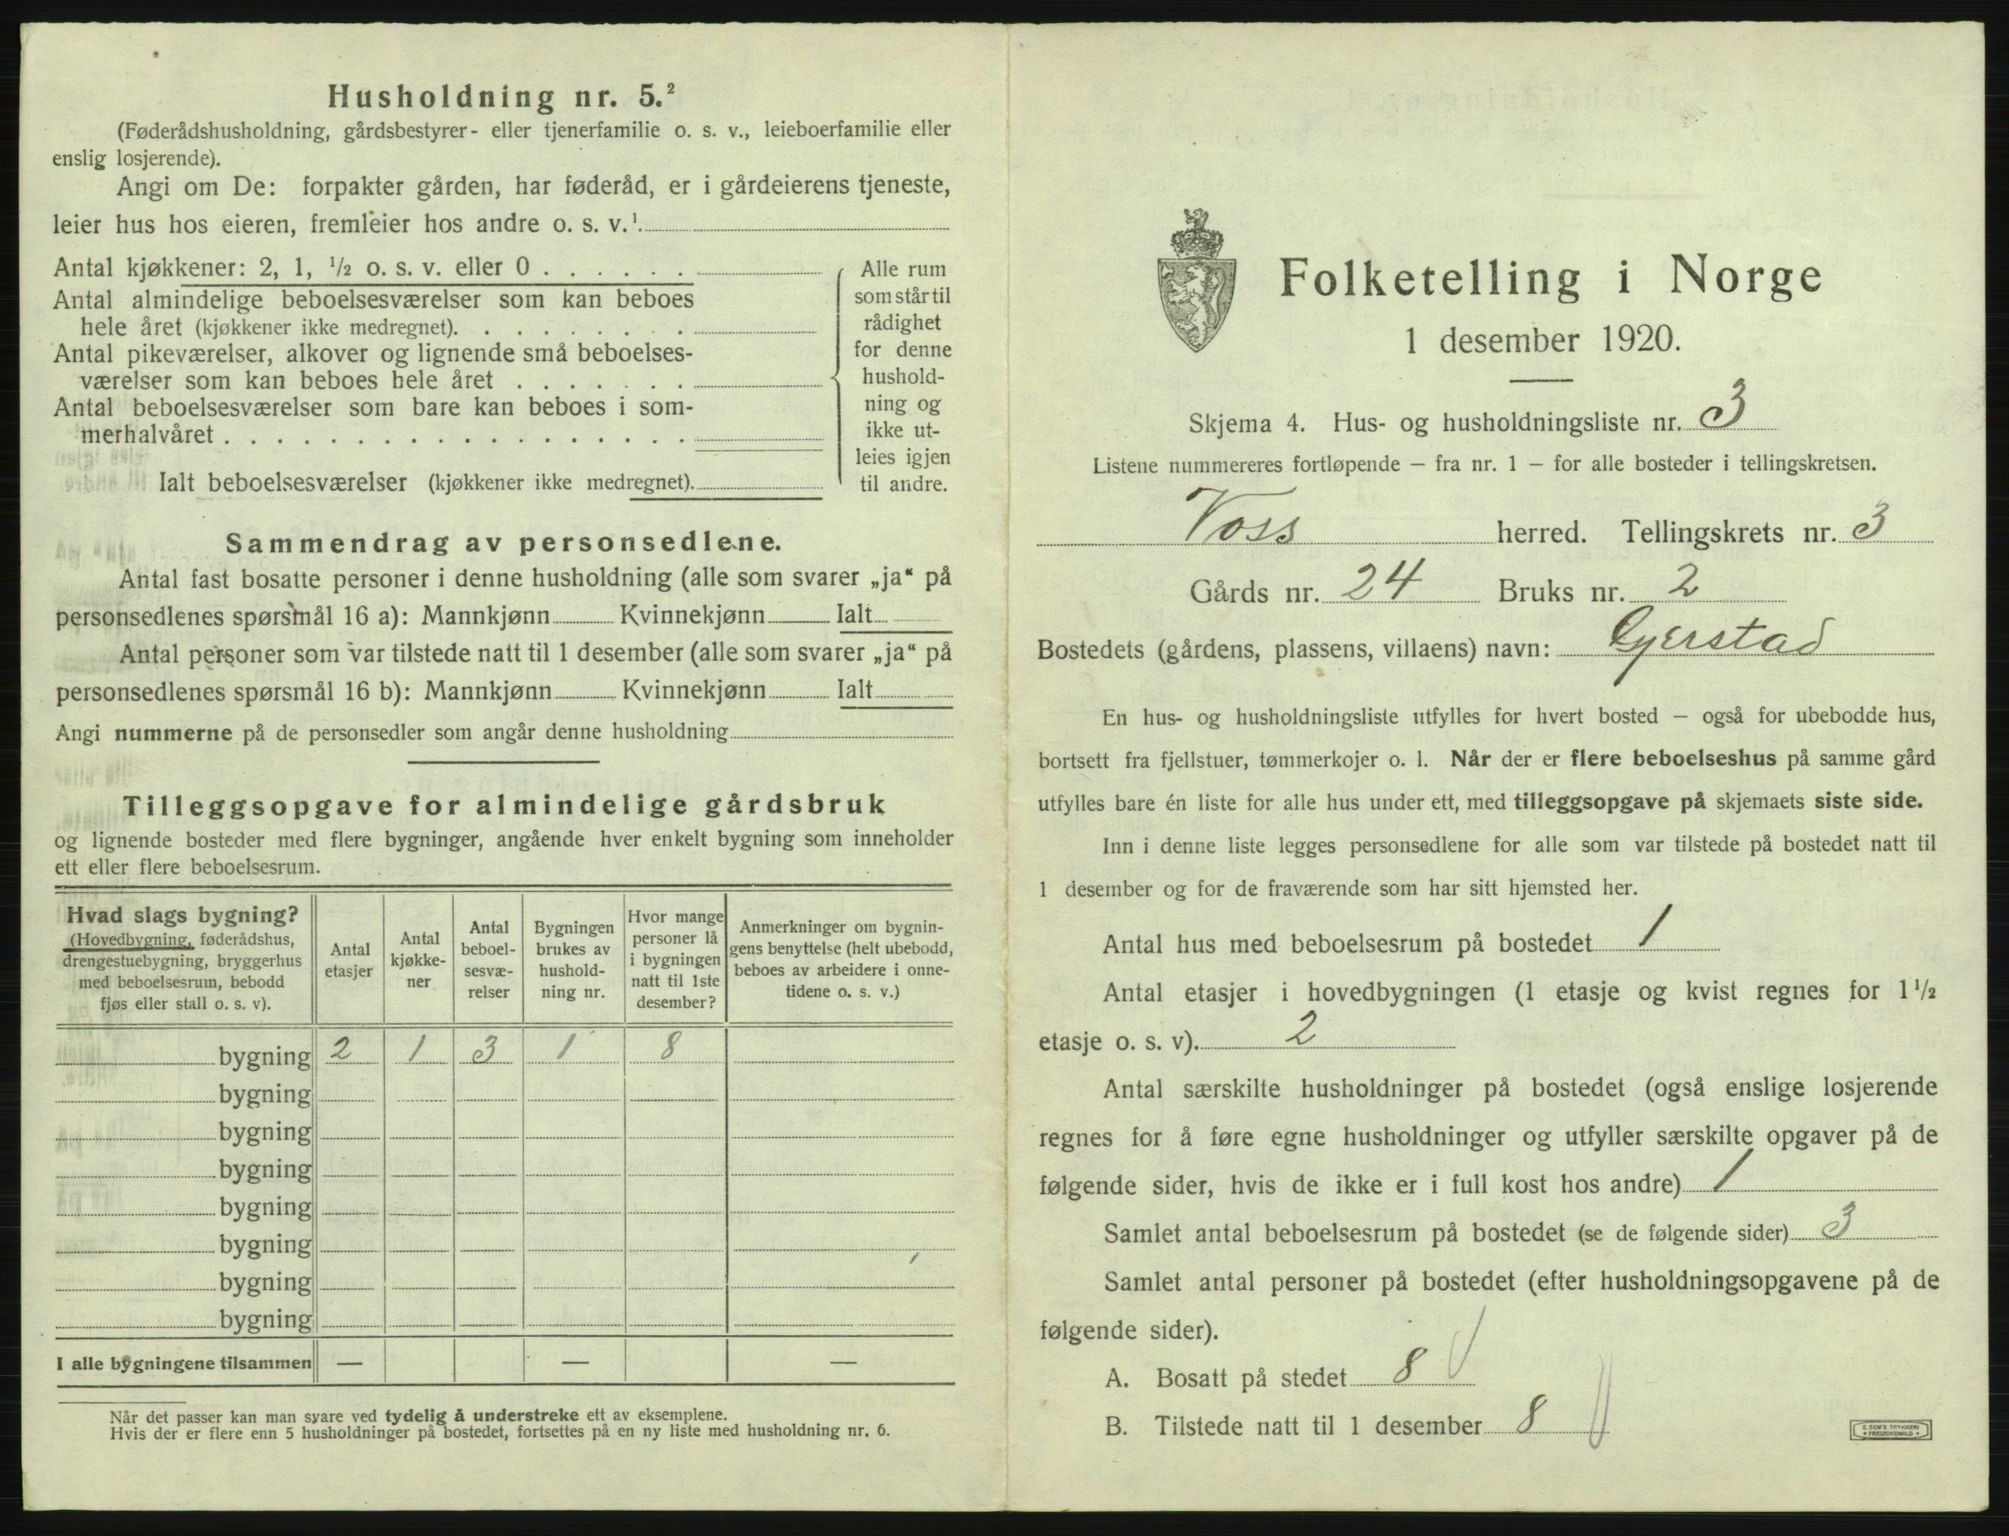 Husholdning nr. 5.²
(Føderådshusholdning, gårdsbestyrer- eller tjenerfamilie o. s. v., leieboerfamilie eller
enslig losjerende).
Angi om De: forpakter gården, har føderåd, er i gårdeierens tjeneste,
leier hus hos eieren, fremleier hos andre o. s. v.¹
Antal kjøkkener: 2, 1, ½ o. s. v. eller 0 . . . . . .
Antal almindelige beboelsesværelser som kan beboes
hele året (kjøkkener ikke medregnet). . . . . . . . .
Antal pikeværelser, alkover og lignende små beboelses-
værelser som kan beboes hele året . . . . . . .
Antal beboelsesværelser som bare kan beboes i som-
merhalvåret . . . . . . . . . . . . . . . . . .
Ialt beboelsesværelser (kjøkkener ikke medregnet).
Alle rum
som står til
rådighet
for denne
hushold-
ning og
ikke ut-
leies igjen
til andre.
Sammendrag av personsedlene.
Antal fast bosatte personer i denne husholdning (alle som svarer „ja“ på
personsedlenes spørsmål 16 a): Mannkjønn Kvinnekjønn Ialt
Antal personer som var tilstede natt til 1 desember (alle som svarer „ja“ på
personsedlenes spørsmål 16 b): Mannkjønn Kvinnekjønn Ialt
Angi nummerne på de personsedler som angår denne husholdning
Tilleggsopgave for almindelige gårdsbruk
og lignende bosteder med flere bygninger, angående hver enkelt bygning som inneholder
ett eller flere beboelsesrum.
Hvad slags bygning?
(Hovedbygning, føderådshus,
drengestuebygning, bryggerhus
med beboelsesrum, bebodd
fjøs eller stall o. s. v).
Antal
etasjer
Antal
kjøkke-
ner
Antal
beboel-
sesvæ-
relser
Bygningen
brukes av
hushold-
ning nr.
Hvor mange
personer lå
i bygningen
natt til 1ste
desember?
Anmerkninger om bygnin-
gens benyttelse (helt ubebodd,
beboes av arbeidere i onne-
tidene o. s. v.)
bygning 2 1 3 1 8
bygning
bygning
bygning
bygning
bygning
bygning
bygning
I alle bygningene tilsammen — — —
Når det passer kan man svare ved tydelig å understreke ett av eksemplene.
Hvis der er flere enn 5 husholdninger på bostedet, fortsettes på en ny liste med husholdning nr. 6.
Folketelling i Norge
1 desember 1920.
Skjema 4. Hus- og husholdningsliste nr. 3
Listene nummereres fortløpende – fra nr. 1 – for alle bosteder i tellingskretsen.
Voss herred. Tellingskrets nr. 3
Gårds nr. 24 Bruks nr. 2
Bostedets (gårdens, plassens, villaens) navn: Gjerstad
En hus- og husholdningsliste utfylles for hvert bosted – også for ubebodde hus,
bortsett fra fjellstuer, tømmerkojer o. l. Når der er flere beboelseshus på samme gård
utfylles bare én liste for alle hus under ett, med tilleggsopgave på skjemaets siste side.
Inn i denne liste legges personsedlene for alle som var tilstede på bostedet natt til
1 desember og for de fraværende som har sitt hjemsted her.
Antal hus med beboelsesrum på bostedet 1
Antal etasjer i hovedbygningen (1 etasje og kvist regnes for 1½
etasje o. s. v). 2
Antal særskilte husholdninger på bostedet (også enslige losjerende
regnes for å føre egne husholdninger og utfyller særskilte opgaver på de
følgende sider, hvis de ikke er i full kost hos andre) 1
Samlet antal beboelsesrum på bostedet (se de følgende sider) 3
Samlet antal personer på bostedet (efter husholdningsopgavene på de
følgende sider).
A. Bosatt på stedet 8
B. Tilstede natt til 1 desember 8
E. SEM'S TRYKKERI
FREDRIKSHALD